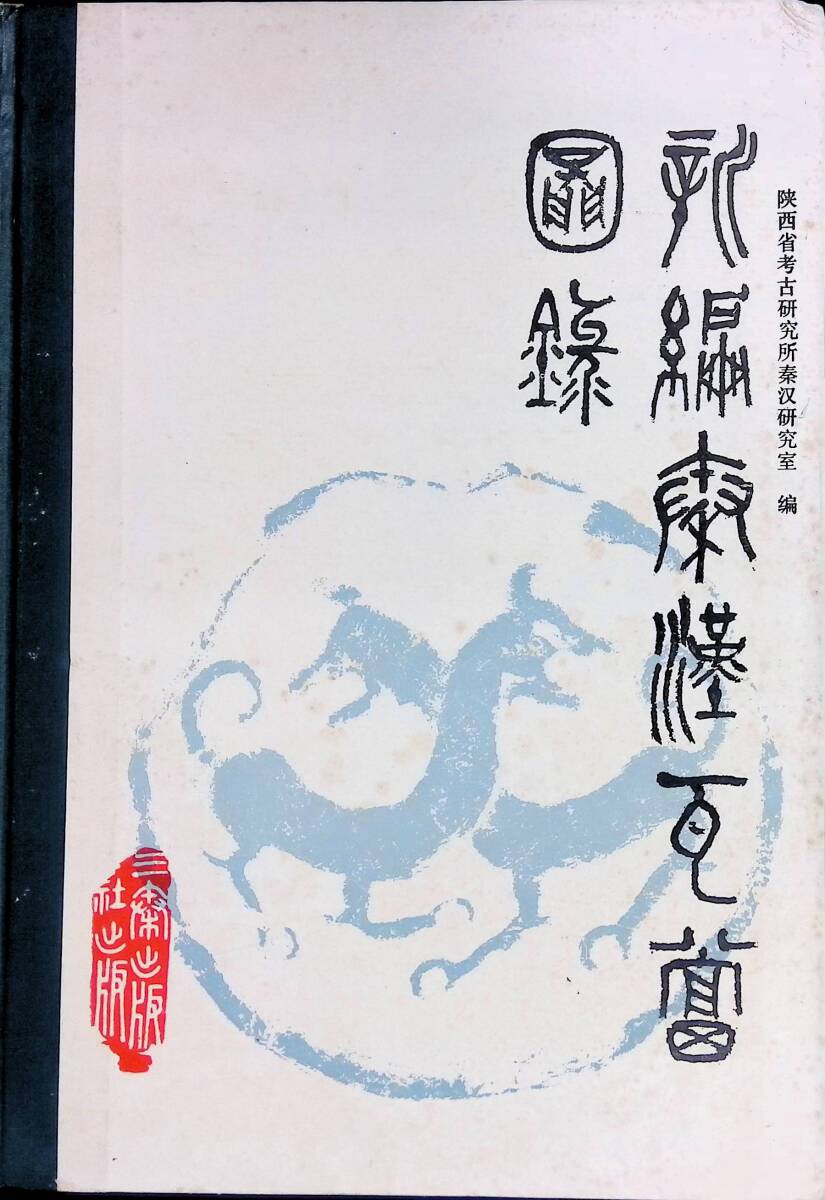 陕西省考古研究所秦汉研究室 编
新編秦漢瓦當
圖錄
三秦出版
社出版